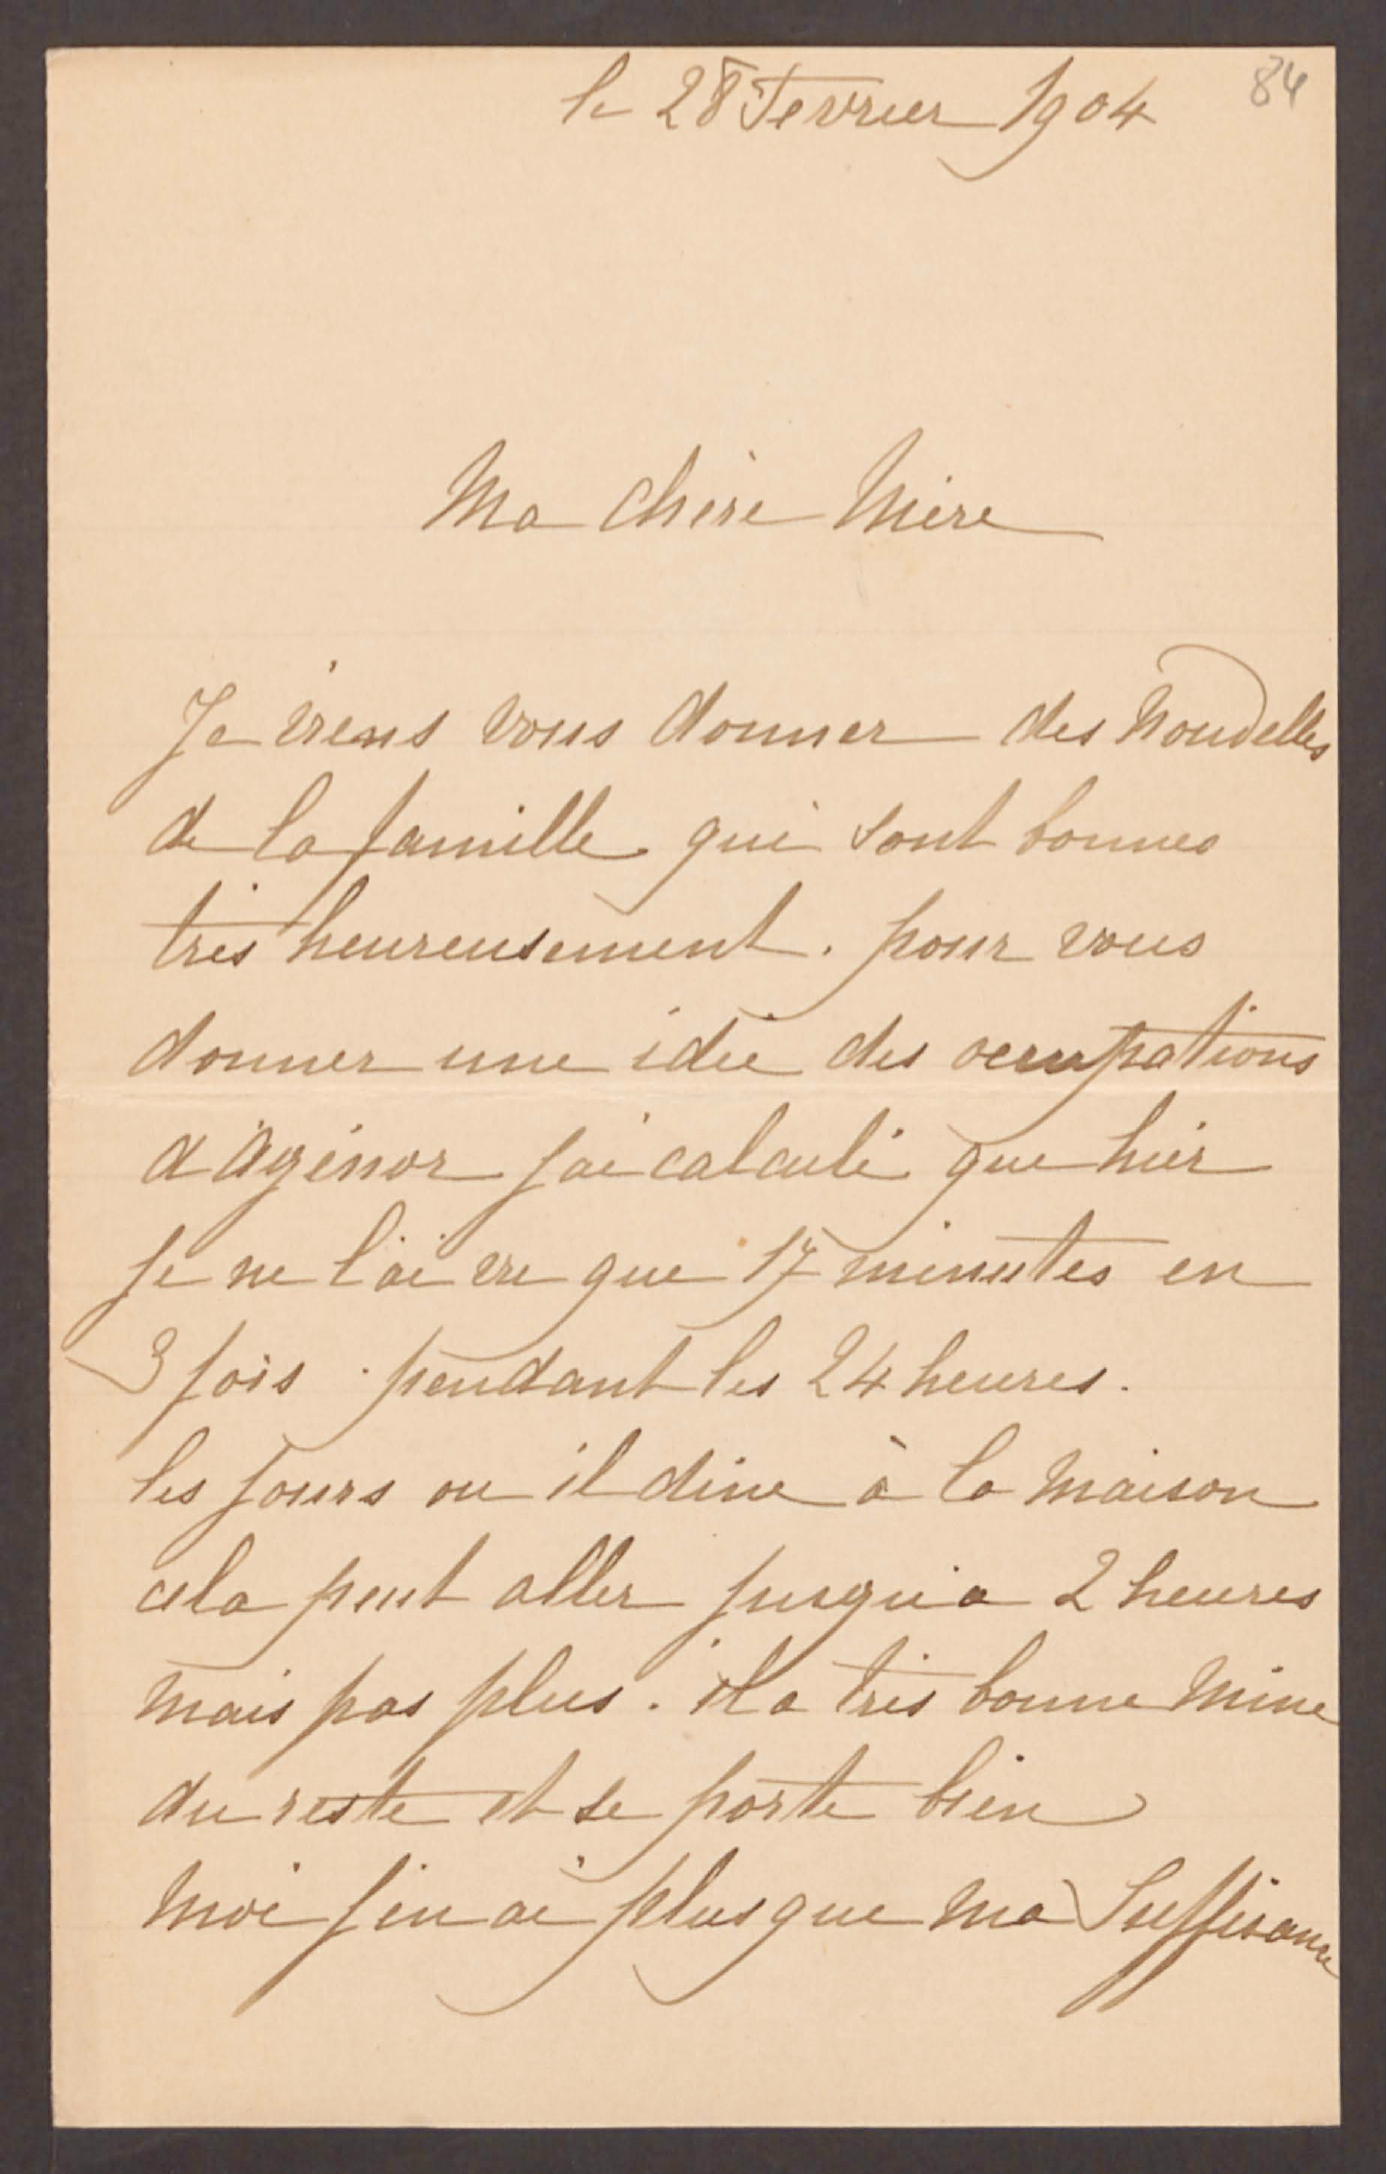 le 28 Fevrier 1904
84
Ma chère Mère
Je viens vous donner des Nouvelles
de la famille qui sont bonnes
très heureusement. pour vous
donner une idée des occupations
d'Agénor j'ai calculé que hier
je ne l'ai vu que 17 minutes en
3 fois pendant les 24 heures.
les jours ou il dine à la Maison
cela peut aller jusqu'a 2 heures
mais pas plus. il a très bonne Mine
du reste et se porte bien
Moi j'en ai plus que ma Suffisance